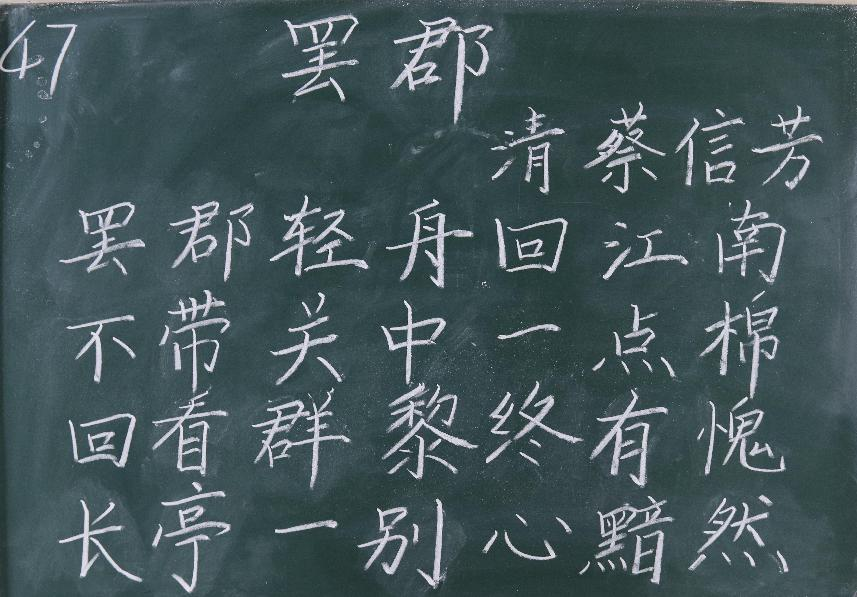 47
罢郡
清 蔡信芳
罢郡轻舟回江南
不带关中一点棉
回看群黎终有愧
长亭一别心黯然